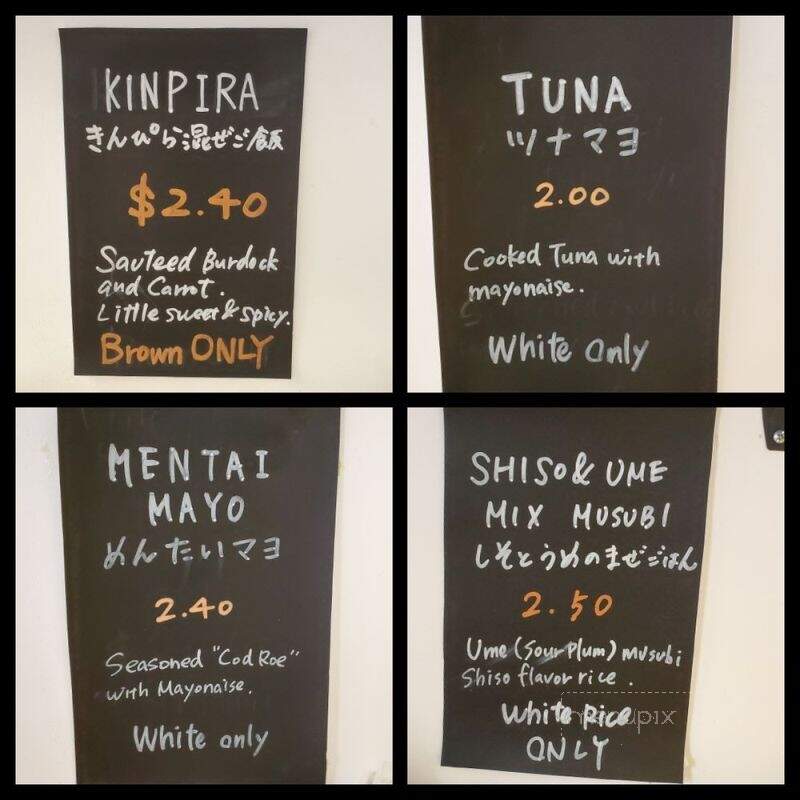 KINPIRA
きんぴら混ぜご飯
$2.40
Sauteed Burdock
and Carrot.
Little sweet & spicy.
Brown ONLY
TUNA
ツナマヨ
2.00
Cooked Tuna with
mayonaise.
White only
MENTAI
MAYO
めんたいマヨ
2.40
Seasoned "Cod Roe"
with Mayonaise.
White only
SHISO & UME
MIX MUSUBI
しそとうめのまぜごはん
2.50
Ume (Sour Plum) musubi
Shiso flavor rice.
White Rice
ONLY